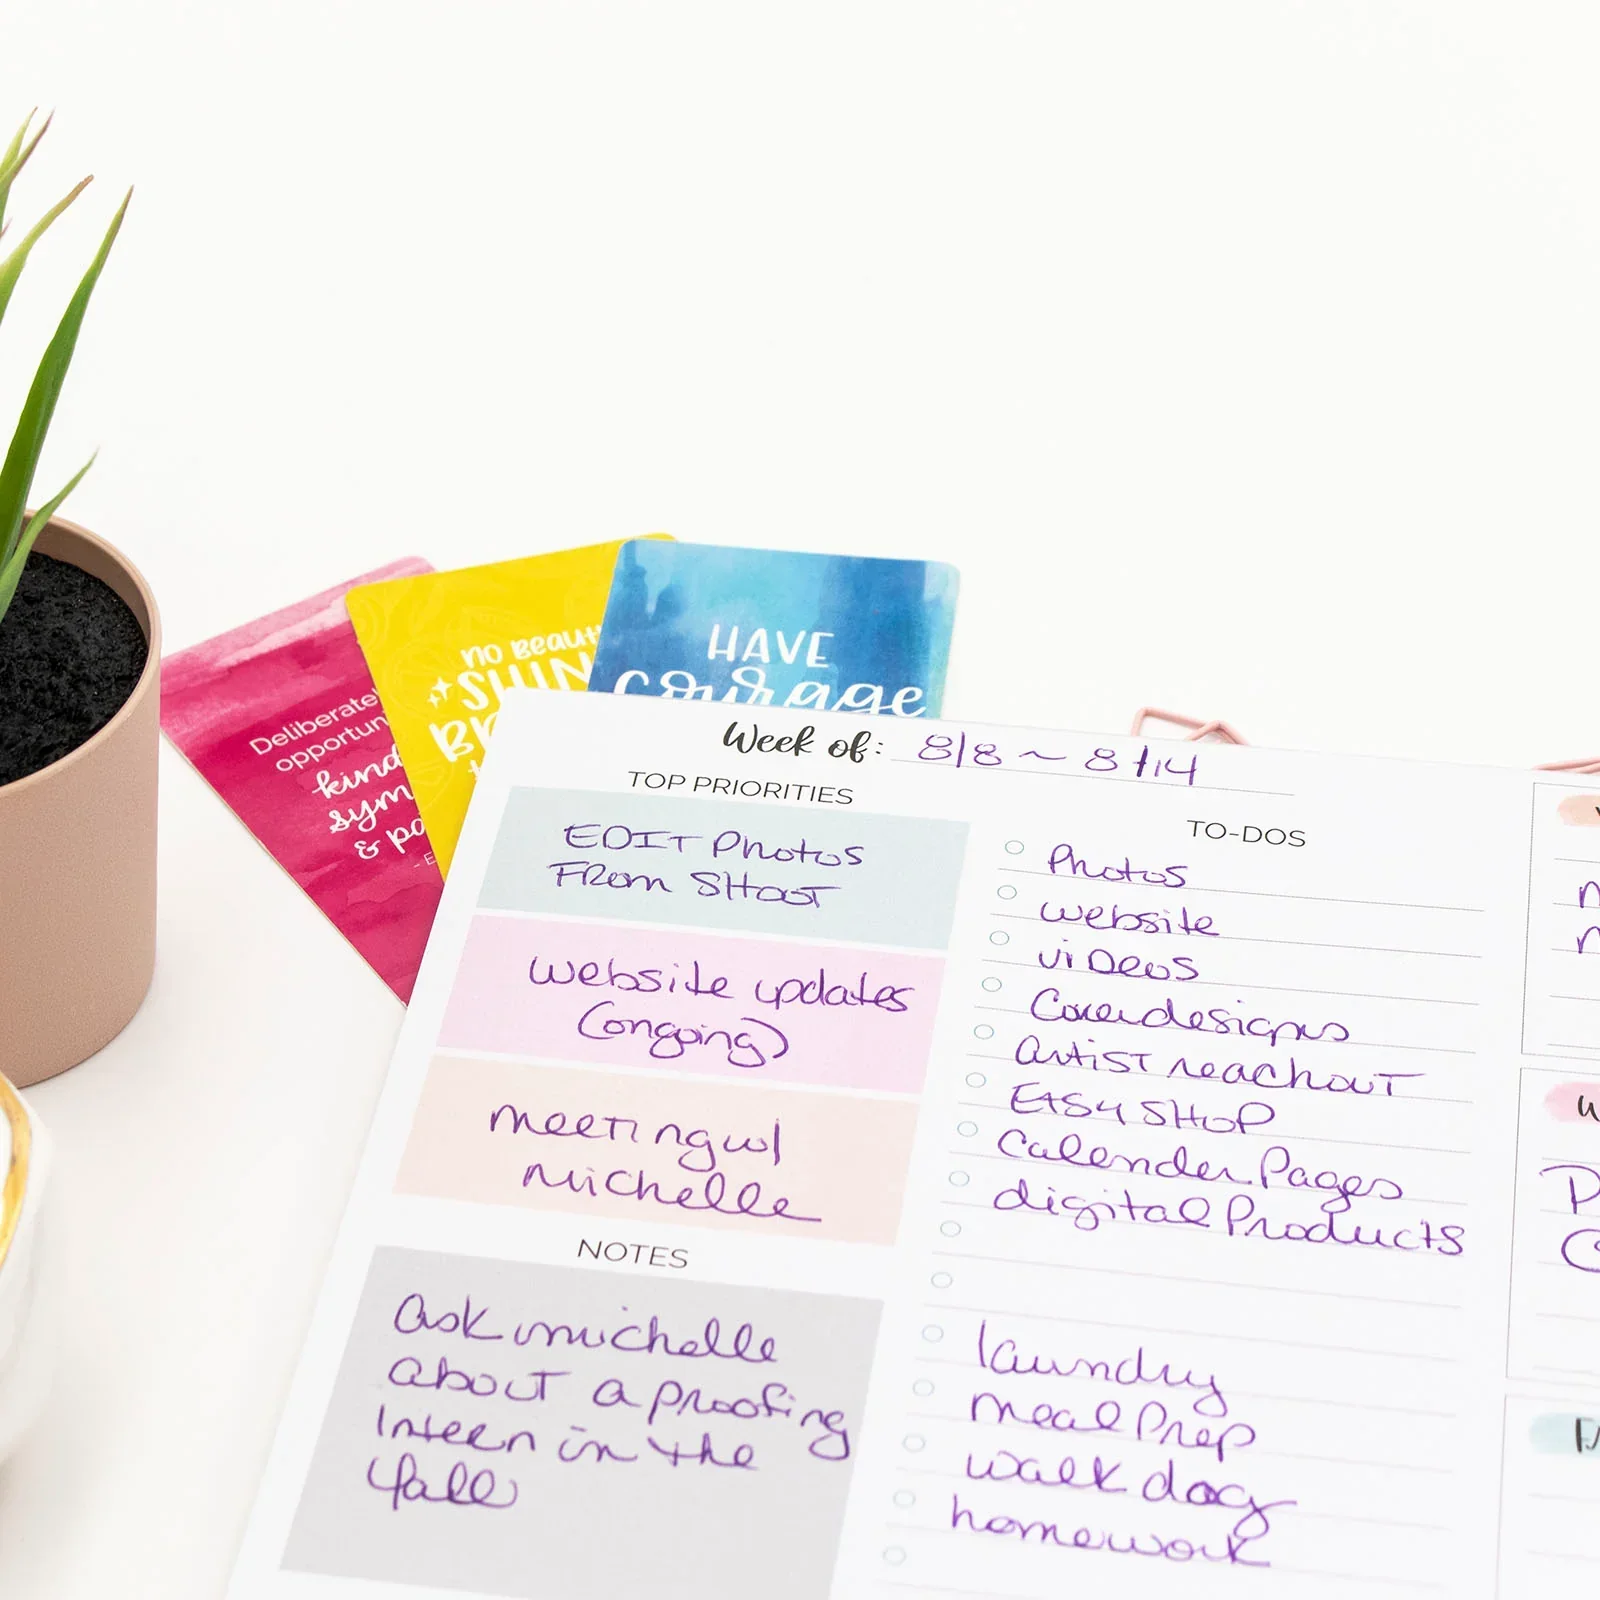 Deliberatel
opportun
kind
sym
& pa
NO Beaut
SHIN
HAVE
courage
Week of: 8/8 ~ 8/14
TOP PRIORITIES
EDIT Photos
From SHOOT
website updates
(ongoing)
meeting w/
michelle
NOTES
ask michelle
about a proofing
Intern in the
fall
TO-DOS
Photos
website
videos
Cover designs
artist reachout
Etsy SHOP
Calender Pages
digital Products
laundry
meal Prep
walk dog
homework